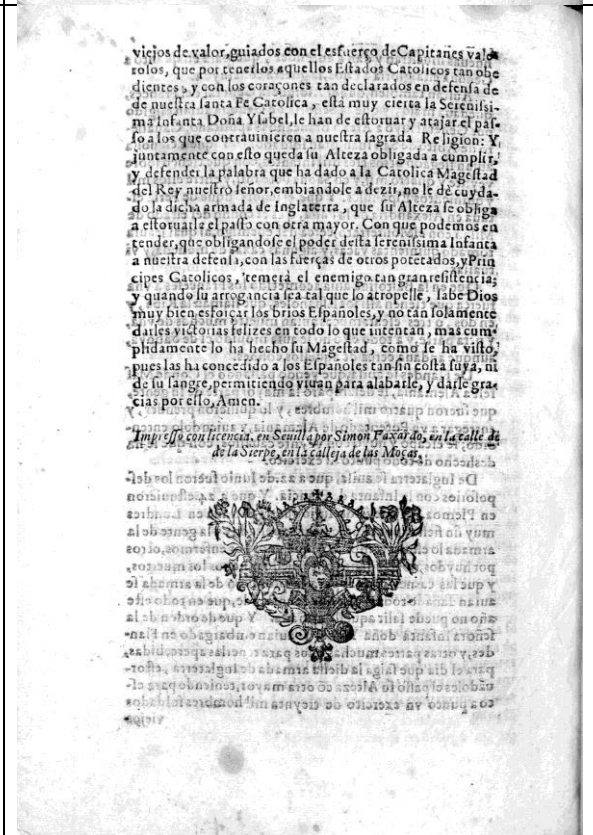 viejos de valor, guiados con el esfuerço de Capitanes valo
rosos, que por tenerlos aquellos Estados Catolicos tan obe
dientes, y con los coraçones tan declarados en defensa de
de nuestra santa Fe Catolica, està muy cierta la Serenissi-
ma Infanta Doña Ysabel, le han de estoruar y atajar el pas-
so a los que contrauinieren a nuestra sagrada Religion: Y
juntamente con esto queda su Alteza obligada a cumplir,
y defender la palabra que ha dado a la Catolica Magestad
del Rey nuestro señor, embiandole a dezir, no le dè cuyda-
do la dicha armada de Inglaterra, que su Alteza se obliga
a estoruarle el passo con otra mayor. Con que podemos en
tender, que obligandose el poder desta serenissima Infanta
a nuestra defensa, con las fuerças de otros potẽtados, y Prin
cipes Catolicos, temerà el enemigo tan gran resistencia;
y quando su arrogancia sea tal que lo atropelle, sabe Dios
muy bien esforçar los brios Españoles, y no tan solamente
darles victorias felizes en todo lo que intentan, mas cum-
plidamente lo ha hecho su Magestad, como se ha visto,
pues las ha concedido a los Españoles tan sin costa suya, ni
de su sangre, permitiendo viuan para alabarle, y darle gra-
cias por esto, Amen.
Impresso con licencia, en Seuilla por Simon Faxardo, en la calle de
de la Sierpe, en la calleja de las Moças.